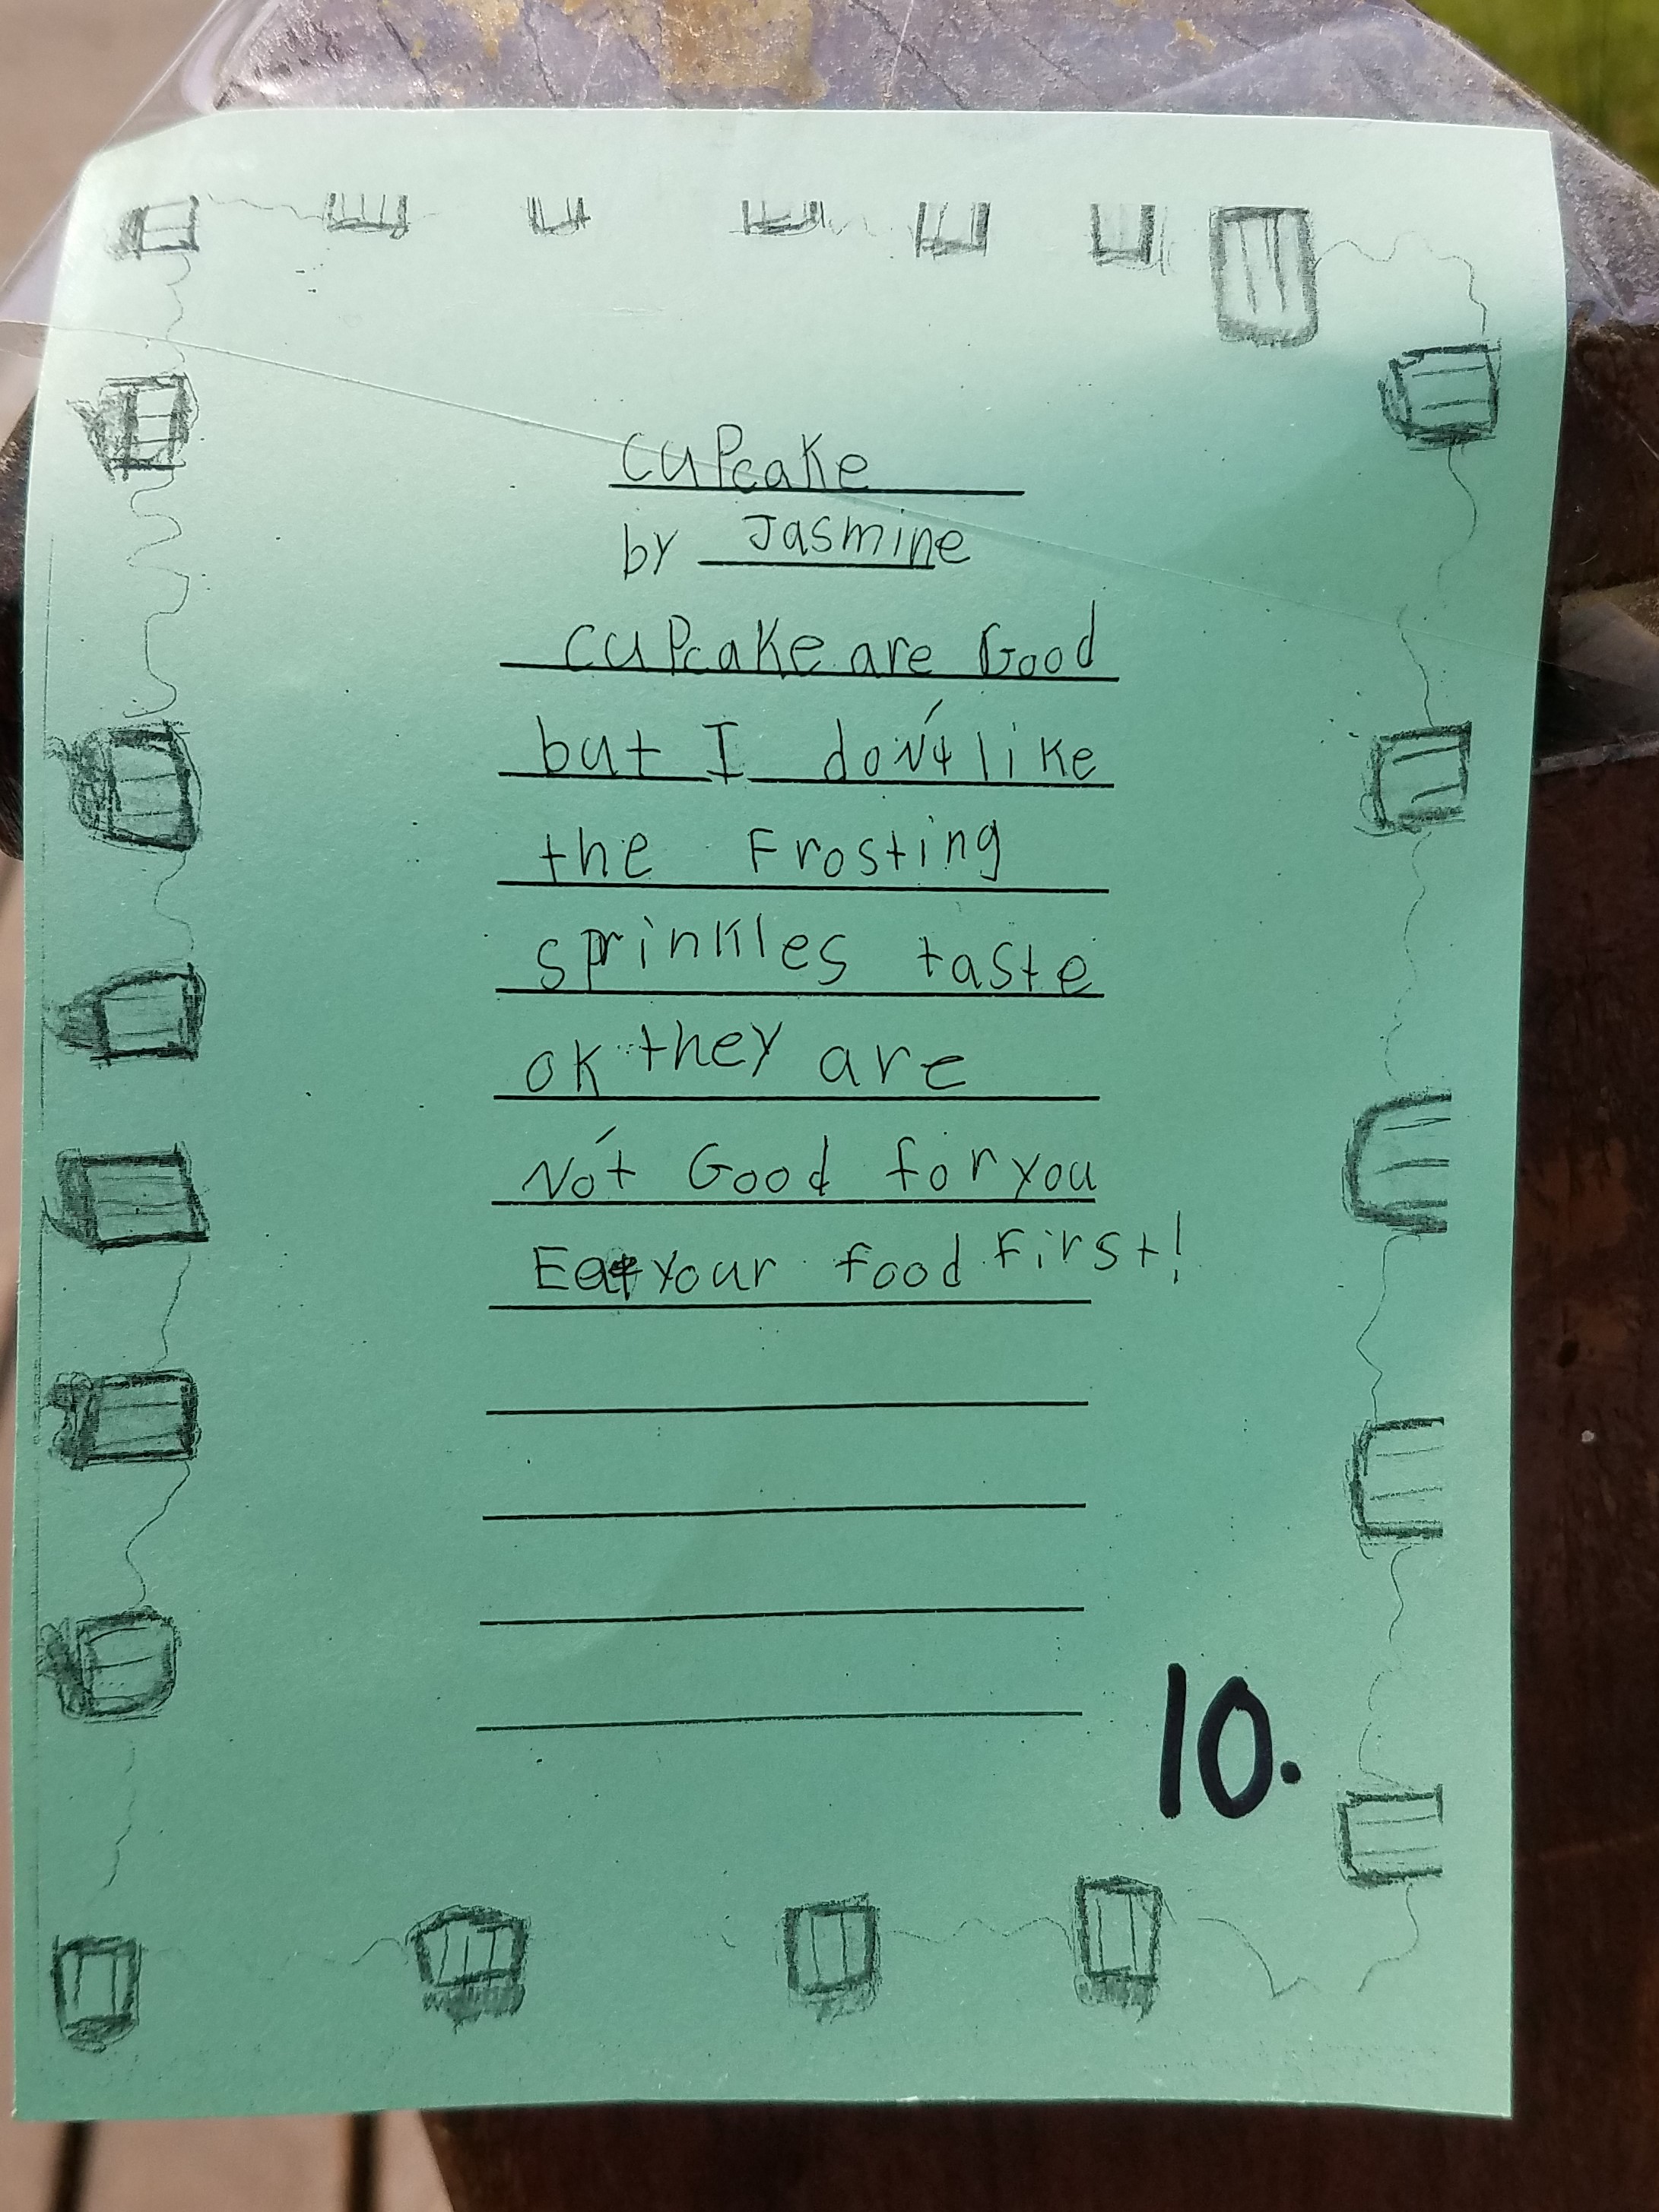 cuPcake
by Jasmine
cuPcake are Good
but I don't like
the Frosting
sprinkles taste
ok they are
No't Good for you
Eat your food First!
10.